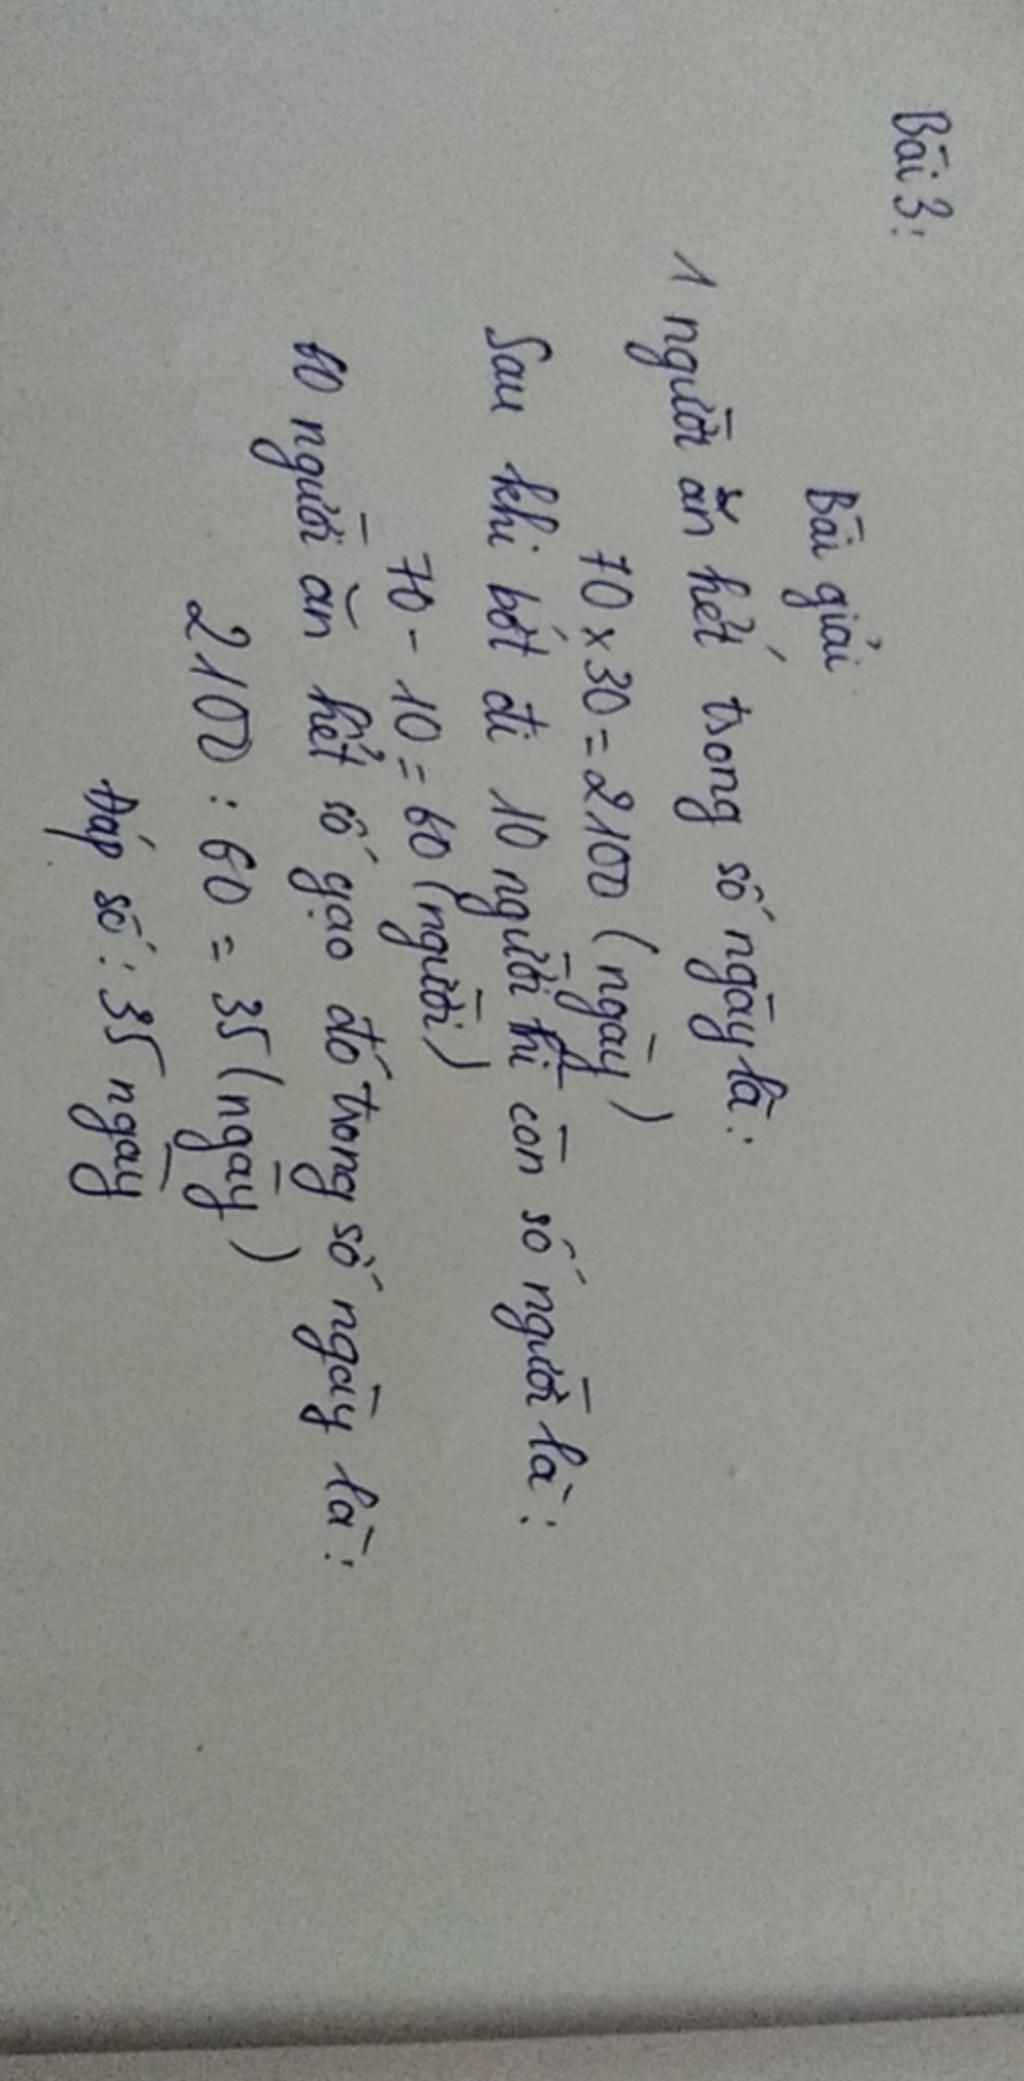 Bài 3:
Bài giải
1 người ăn hết trong số ngày là:
70 x 30 = 2100 (ngày)
Sau khi bớt đi 10 người thì còn số người là:
70 - 10 = 60 (người)
60 người ăn hết số gạo đó trong số ngày là:
2100 : 60 = 35 (ngày)
Đáp số: 35 ngày